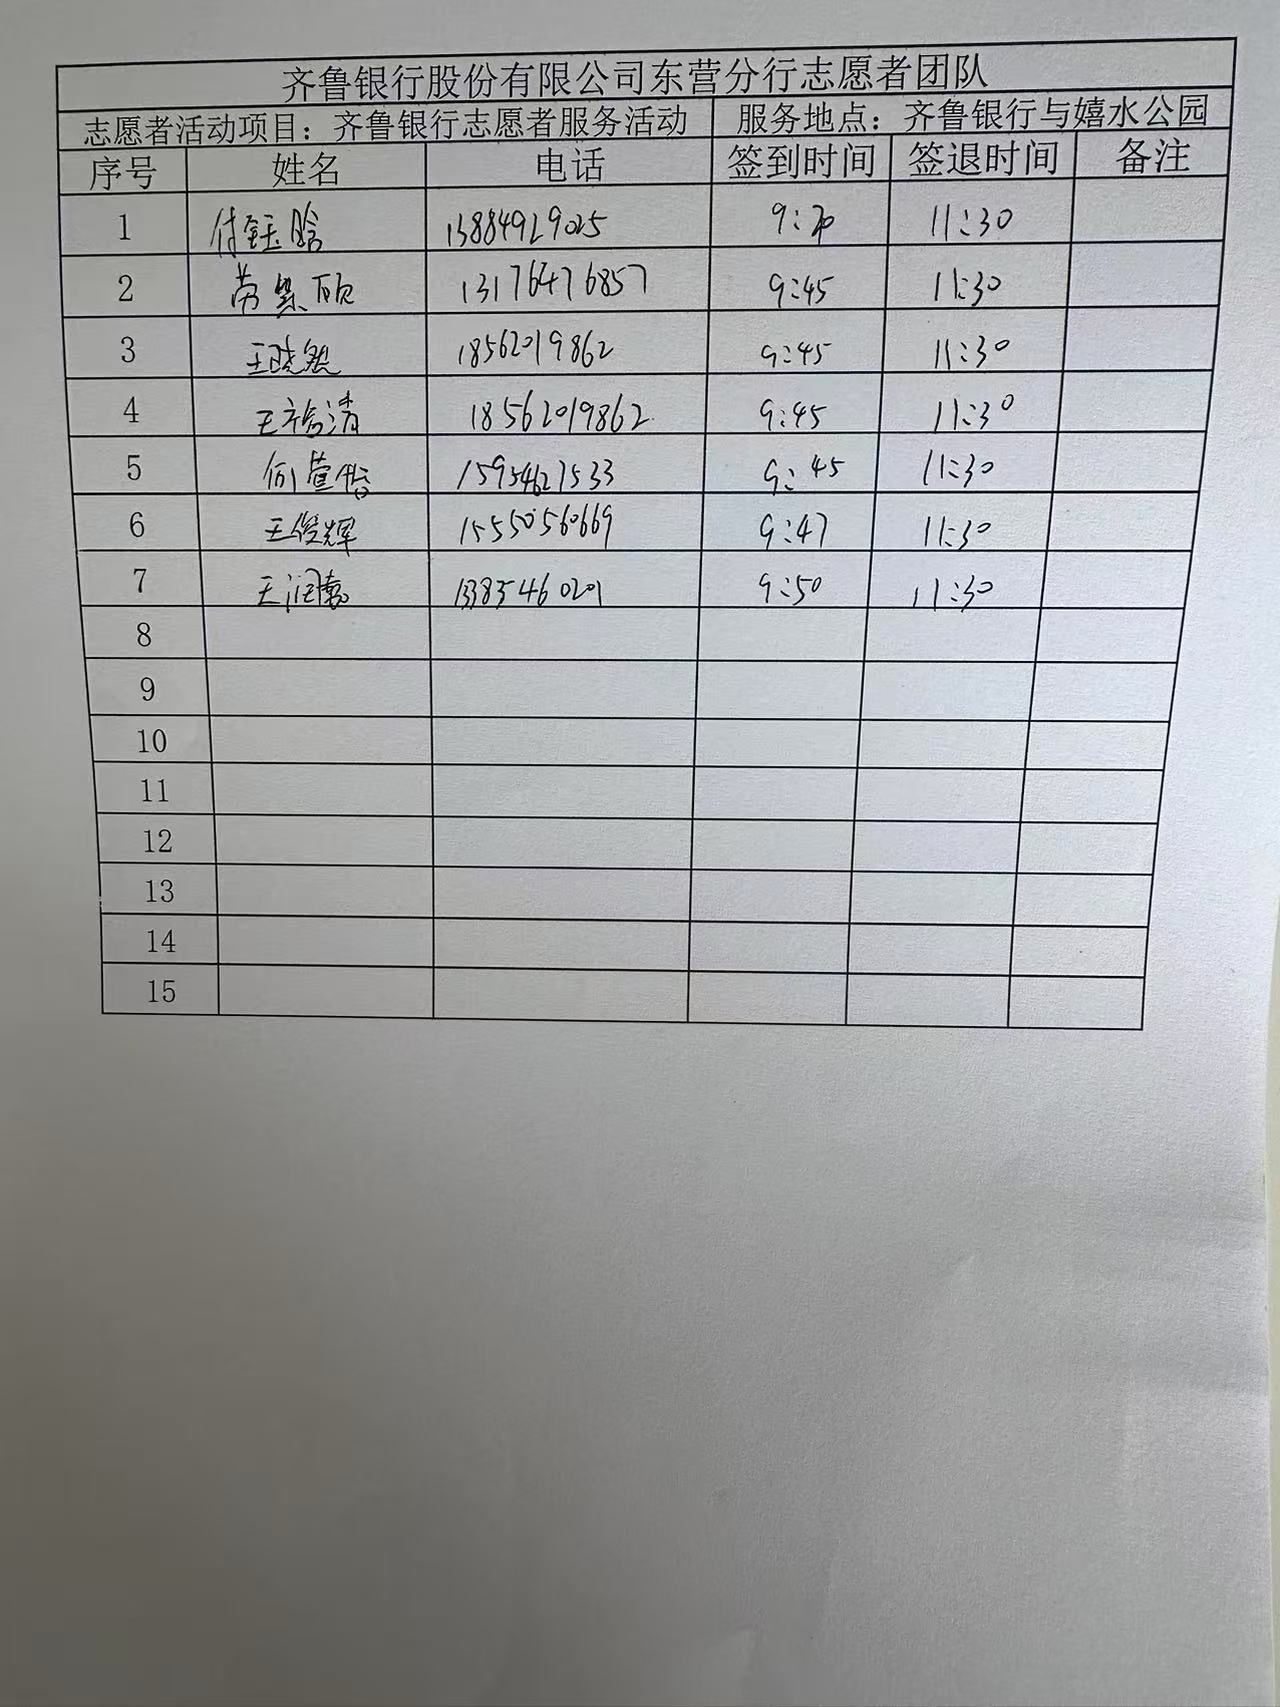 齐鲁银行股份有限公司东营分行志愿者团队
志愿者活动项目：齐鲁银行志愿者服务活动 服务地点：齐鲁银行与嬉水公园
序号 姓名 电话 签到时间 签退时间 备注
1 付钰晗 13884929025 9:20 11:30
2 13176476857 9:45 11:30
3 王晓然 18562019862 9:45 11:30
4 18562019862 9:45 11:30
5 何萱怡 15954627533 9:45 11:30
6 王俊辉 15550560669 9:47 11:30
7 13385460201 9:50 11:30
8
9
10
11
12
13
14
15